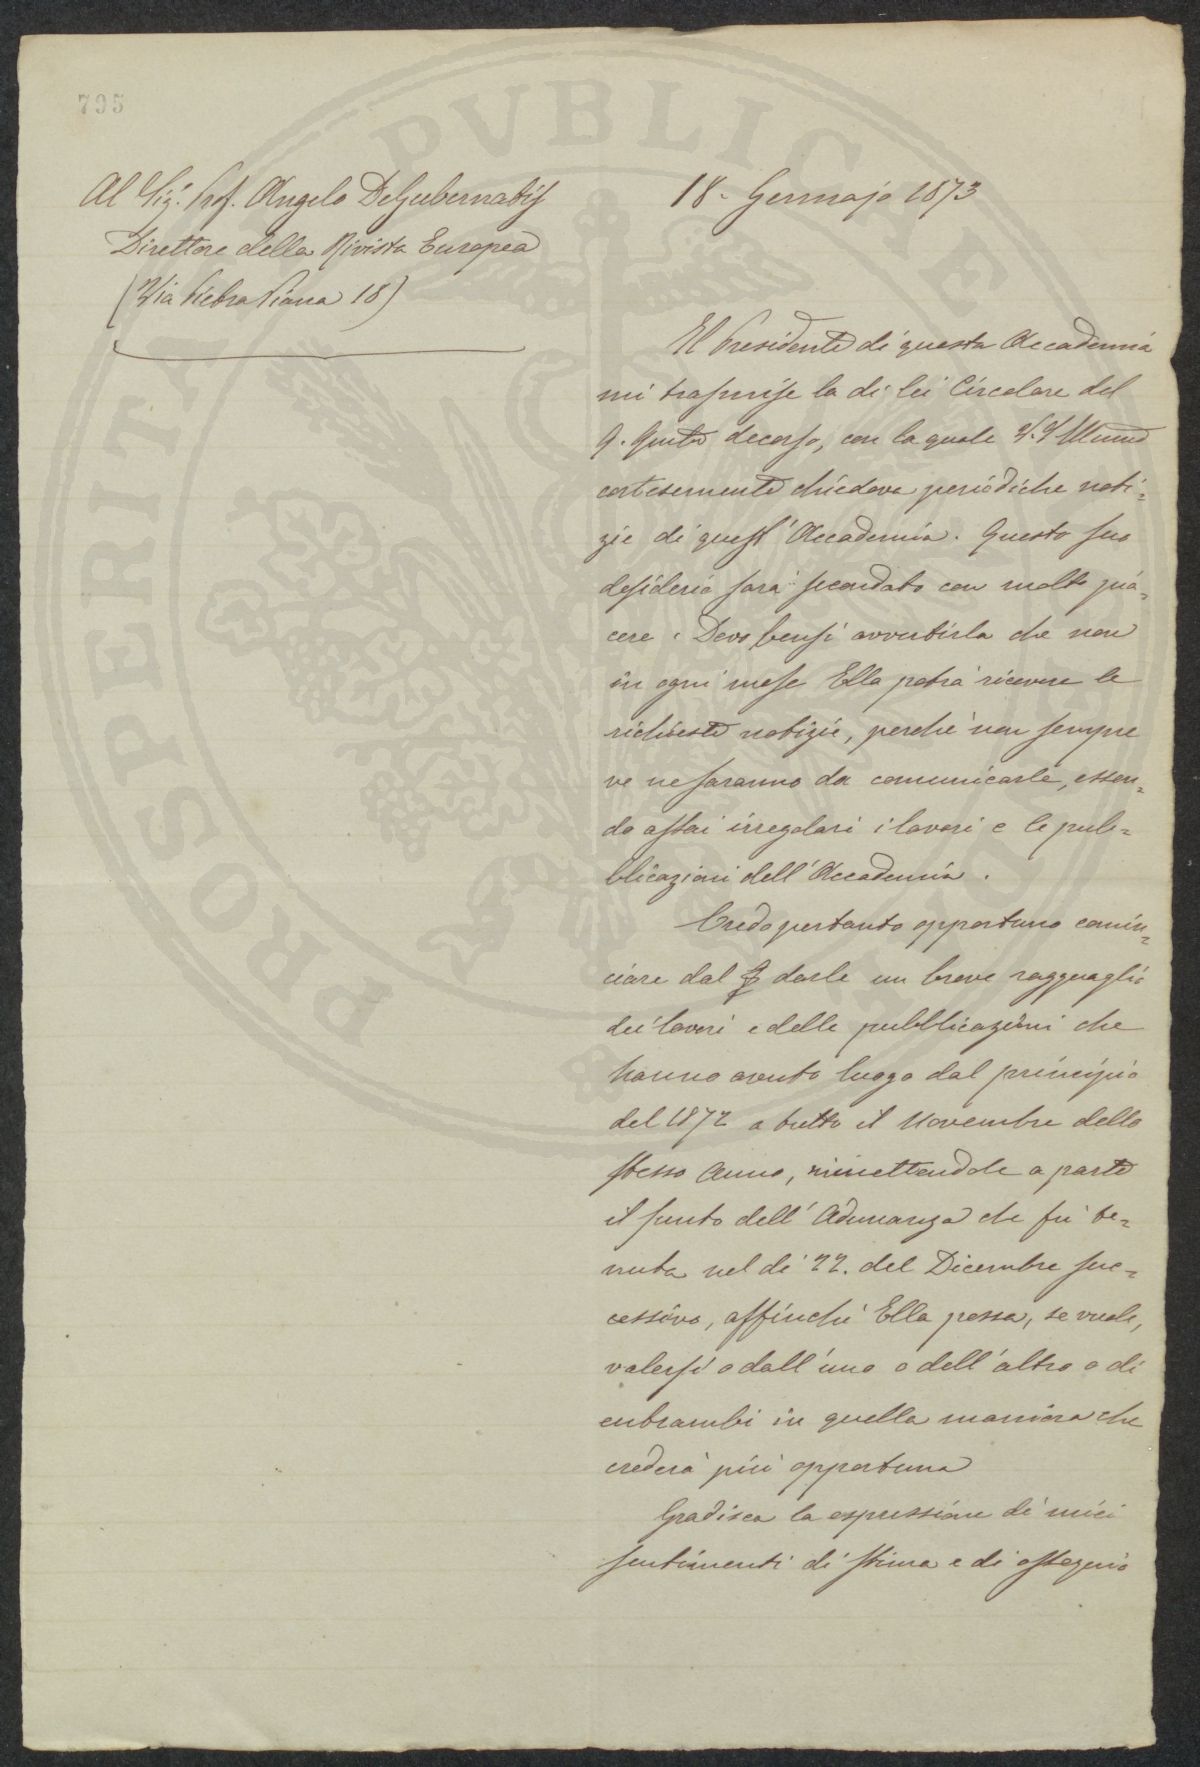 795
Al Sig.r Prof. Angelo DeGubernatis
Direttore della Rivista Europea
(Via Pietra Piana 18)
18. Gennajo 1873
Il Presidente di questa Accademia
mi trasmise la di lei Circolare del
9. decorso, con la quale V. S. Illma
cortesemente chiedeva periodiche noti-
zie di quest' Accademia. Questo suo
desiderio sarà secondato con molto pia-
cere. Devo bensì avvertirla che non
in ogni mese Ella potrà ricevere le
richieste notizie, perchè non sempre
ve ne saranno da comunicarle, essen-
do assai irregolari i lavori e le pub-
blicazioni dell' Accademia.
Credo pertanto opportuno comin-
ciare dal darle un breve ragguaglio
dei lavori e delle pubblicazioni che
hanno avuto luogo dal principio
del 1872 a tutto il Novembre dello
stesso Anno, rimettendole a parte
il sunto dell' Adunanza che fu te-
nuta nel dì 22. del Dicembre suc-
cessivo, affinchè Ella possa, se vuole,
valersi o dall' uno o dell' altro o di
entrambi in quella maniera che
crederà più opportuna
Gradisca la espressione di miei
sentimenti di stima e di ossequio
PROSPERITATI PVBLICAE